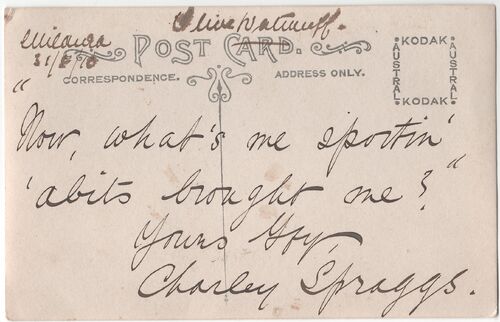 Olive
31/5/10
POST CARD.
CORRESPONDENCE.
ADDRESS ONLY.
KODAK
AUSTRAL
AUSTRAL
KODAK
"Now, what's me sportin'
'abits brought me?"
Yours
Charley Spraggs.